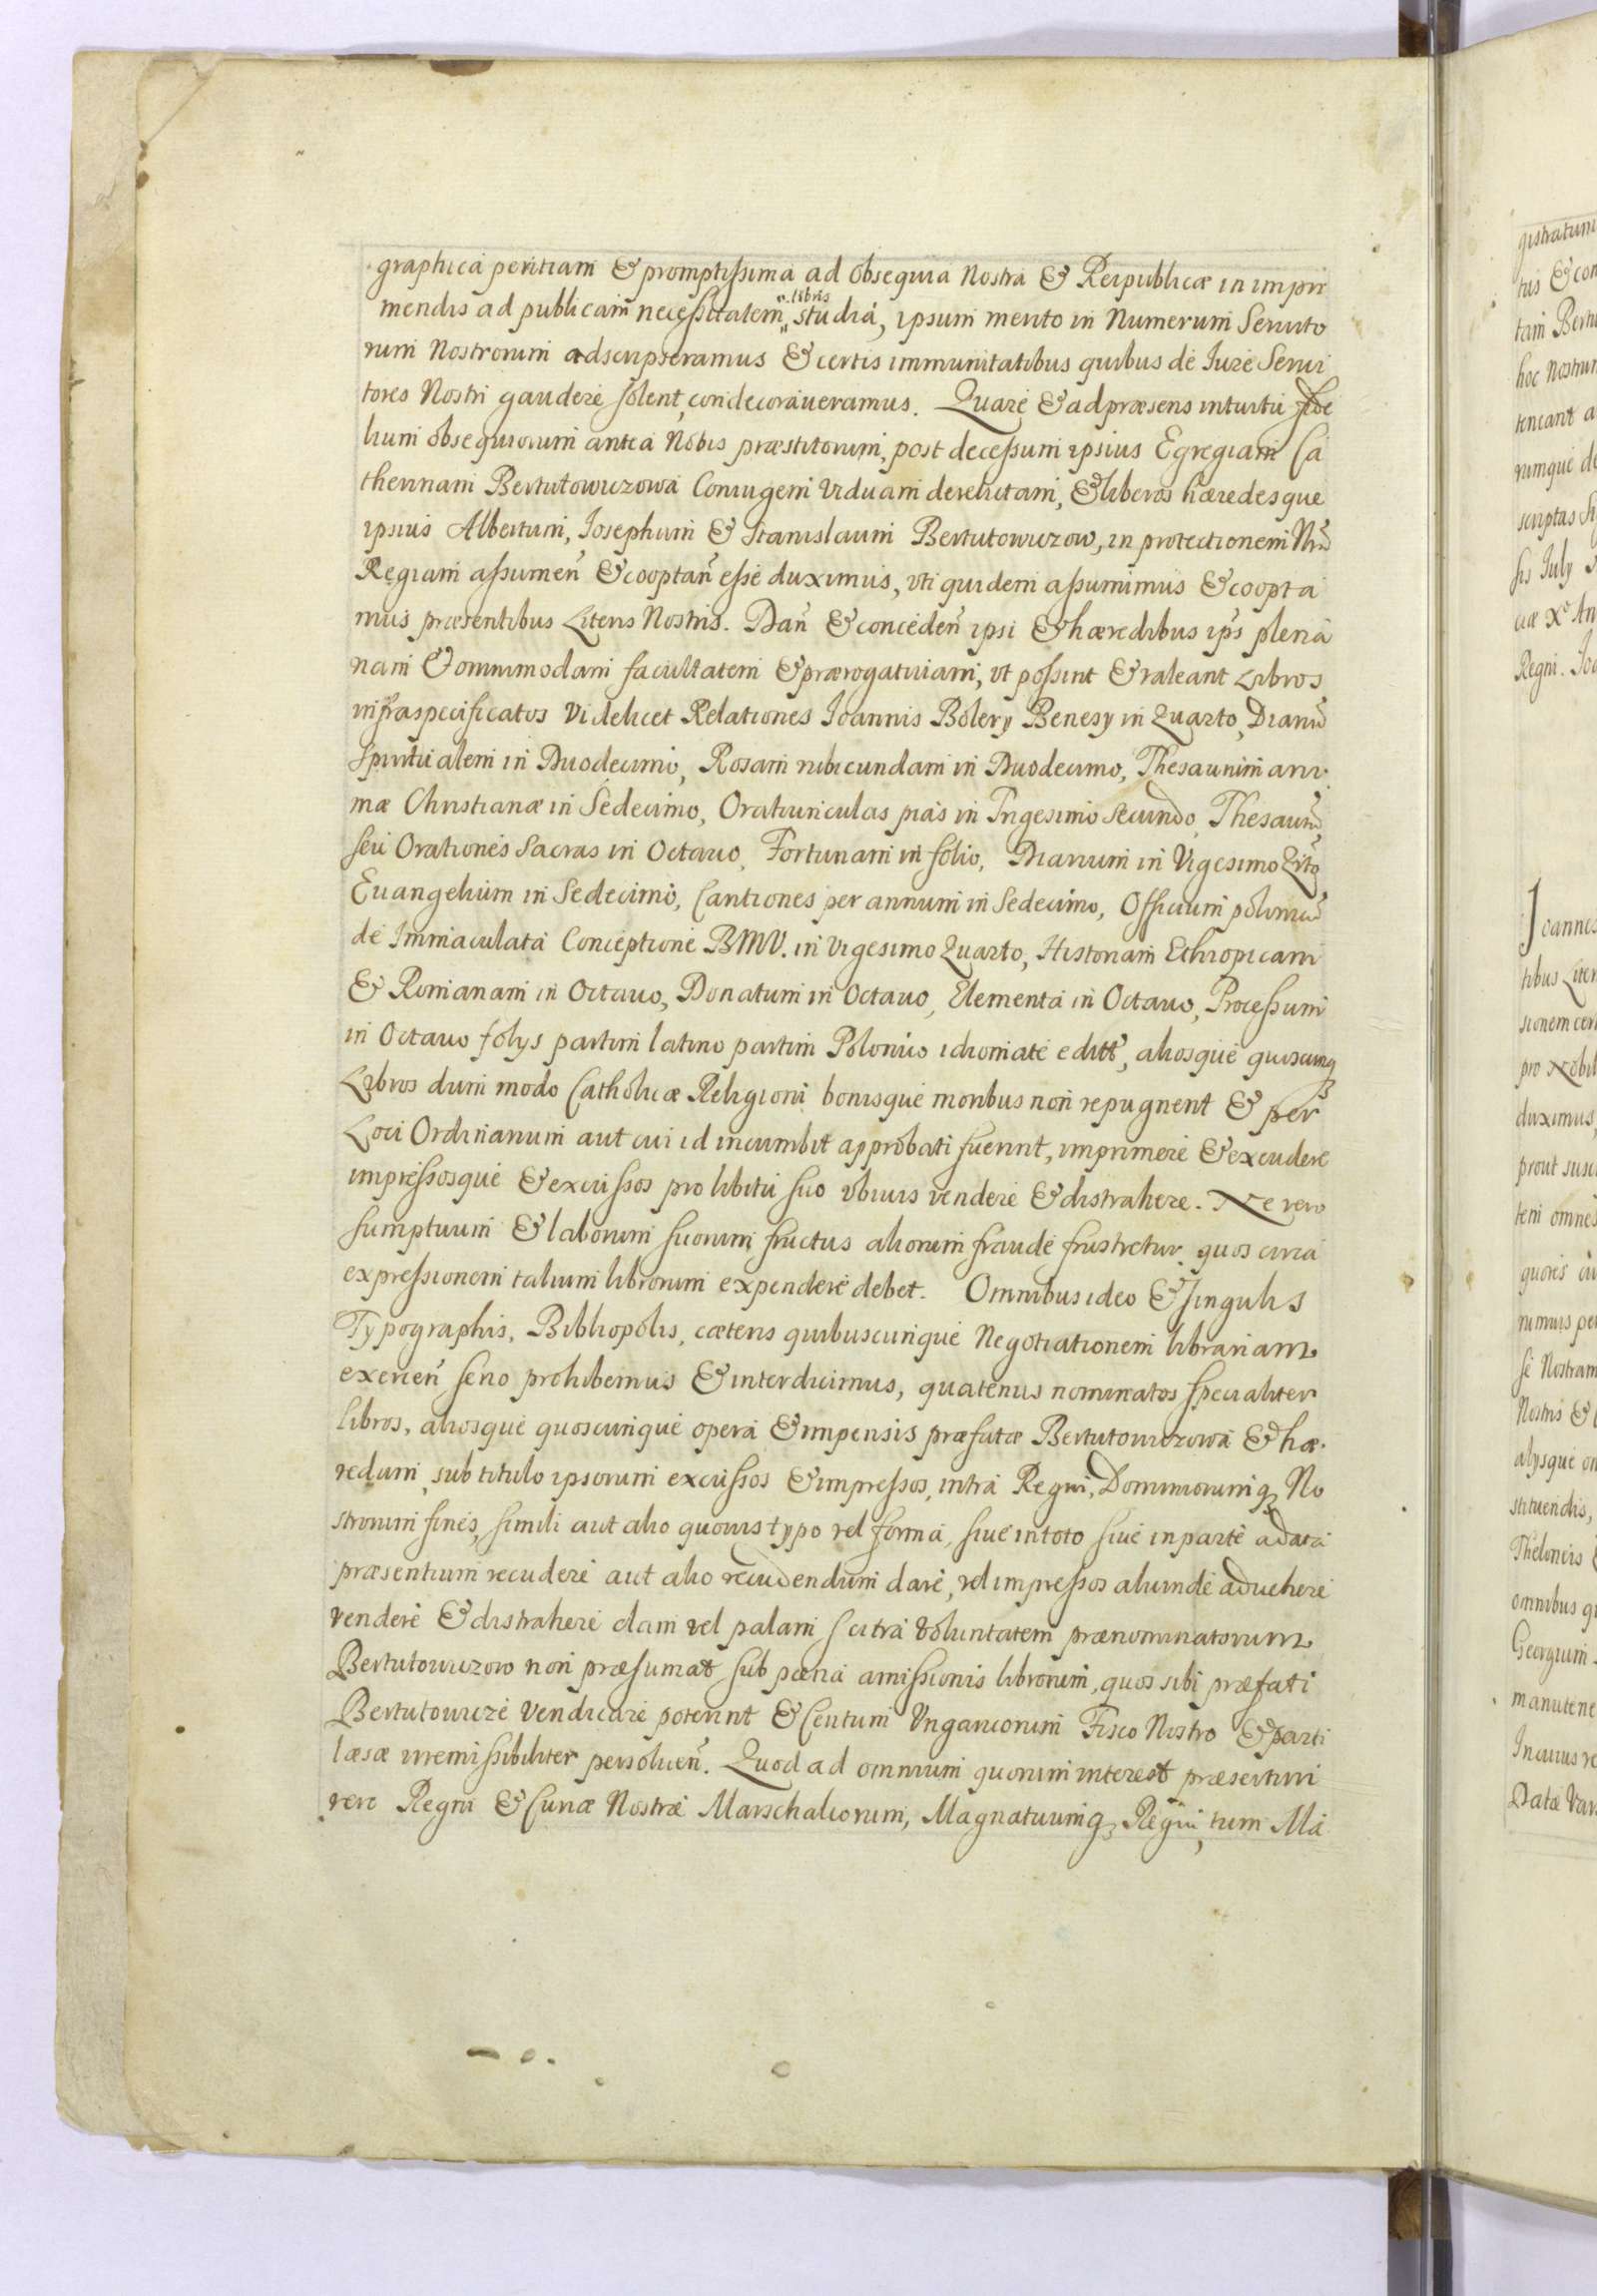 graphica peritiam & promptissima ad obsequia Nostra & Reipublicæ in impri
mendis ad publicam necessitatem libris studia, ipsum merito in Numerum Seruito
rum Nostrorum adscripseramus & certis immunitatibus quibus de Iure Serui
tores Nostri gaudere solent, condecoraueramus. Quare & ad præsens intuitu fide
lium obsequiorum antea Nobis præstitorum, post decessum ipsius Egregiam Ca
therinam Bertutowiczowa Coniugem Viduam derelictam, & liberos hæredesque
ipsius Albertum, Iosephum & Stanislaum Bertutowiczow, in protectionem Nrã
Regiam assumeñ & cooptañ esse duximus, vti quidem assumimus & coopta
mus præsentibus Literis Nostris. Dañ & concedeñ ipsi & hæredibus ips plena
nam & omnimodam facultatem & prærogatiuam, vt possint & valeant Libros
infraspecificatos Videlicet Relationes Ioannis Bolery Benesy in Quarto, Diariũ
Spiritualem in Duodecimo, Rosam rubicundam in Duodecimo, Thesaurum ani
mæ Christianæ in Sedecimo, Oratiunculas pias in Trigesimo Secundo, Thesaurũ
seu Orationes Sacras in Octauo, Fortunam in folio, Diarium in Vigesimo Qrto,
Euangelium in Sedecimo, Cantiones per annum in Sedecimo, Officium polonicũ
de Immaculata Conceptione BMV. in Vigesimo Quarto, Historiam Ethiopicam
& Romanam in Octauo, Donatum in Octauo, Elementa in Octauo, Processum
in Octauo folys partim latino partim Polonico idiomate editt, aliosque quoscunq
Libros dum modo Catholicæ Religioni bonisque moribus non repugnent & per
Loci Ordinarium aut cui id incumbit approbati fuerint, imprimere & excudere
impressosque & excussos pro libitu suo vbiuis vendere & distrahere. Ne vero
sumptuum & laborum suorum fructus aliorum fraude frustretur, quos circa
expressionem talium librorum expendere debet. Omnibus ideo & singulis
Typographis, Bibliopolis, cæteris quibuscunque Negotiationem librariam
exerceñ serio prohibemus & interdicimus, quatenus nominatos specialiter
libros, aliosque quoscunque opera & impensis præfatæ Bertutowiczowa & hæ
redum, sub titulo ipsorum excussos & impressos, intra Regni, Dominiorumq No
strorum fines, simili aut alio quouis typo vel forma, siue in toto siue in parte a data
præsentium recudere aut alio recudendum dare, vel impressos aliunde aduehere
vendere & distrahere clam vel palam citra Voluntatem prænominatorum
Bertutowiczow non præsumat sub pæna amissionis librorum, quos sibi præfati
Bertutowicze Vendicare poterint & Centum Vngaricorum Fisco Nostro & parti
læsæ irremissibiliter persolueñ. Quod ad omnium quorum interest præsertim
vero Regni & Curiæ Nostræ Marschalcorum, Magnatuumq Regni, tum Ma